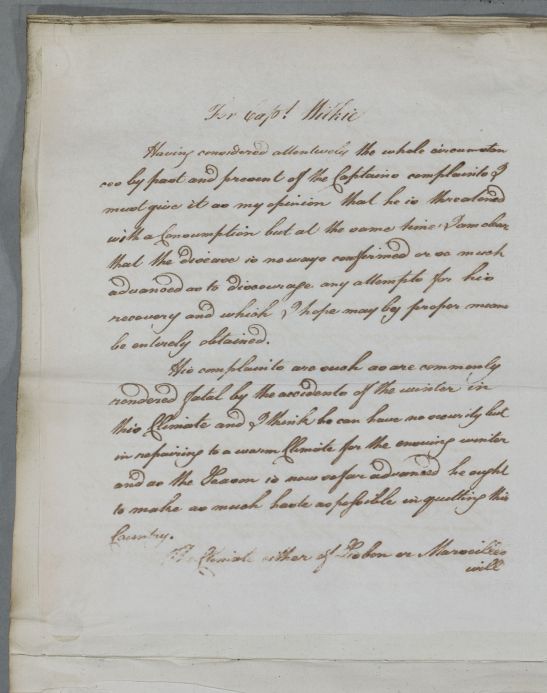 For Capt. Wilkie
Having considered attentively the whole circumstan
ces by past and present of the Captains complaints I
must give it as my opinion that he is threatened
with a Consumption but at the same time I am clear
that the disease is no ways confirmed or so much
advanced as to discourage any attempts for his
recovery and which I hope may by proper means
be entirely obtained.
His complaints are such as are commonly
rendered fatal by the accidents of the winter in
this Climate and I think he can have no security but
in repairing to a warm Climate for the ensuing winter
and as the Season is now so far advanced he ought
to make as much haste as possible in quitting this
Country.
The Climate either of Lisbon or Marseilles
will